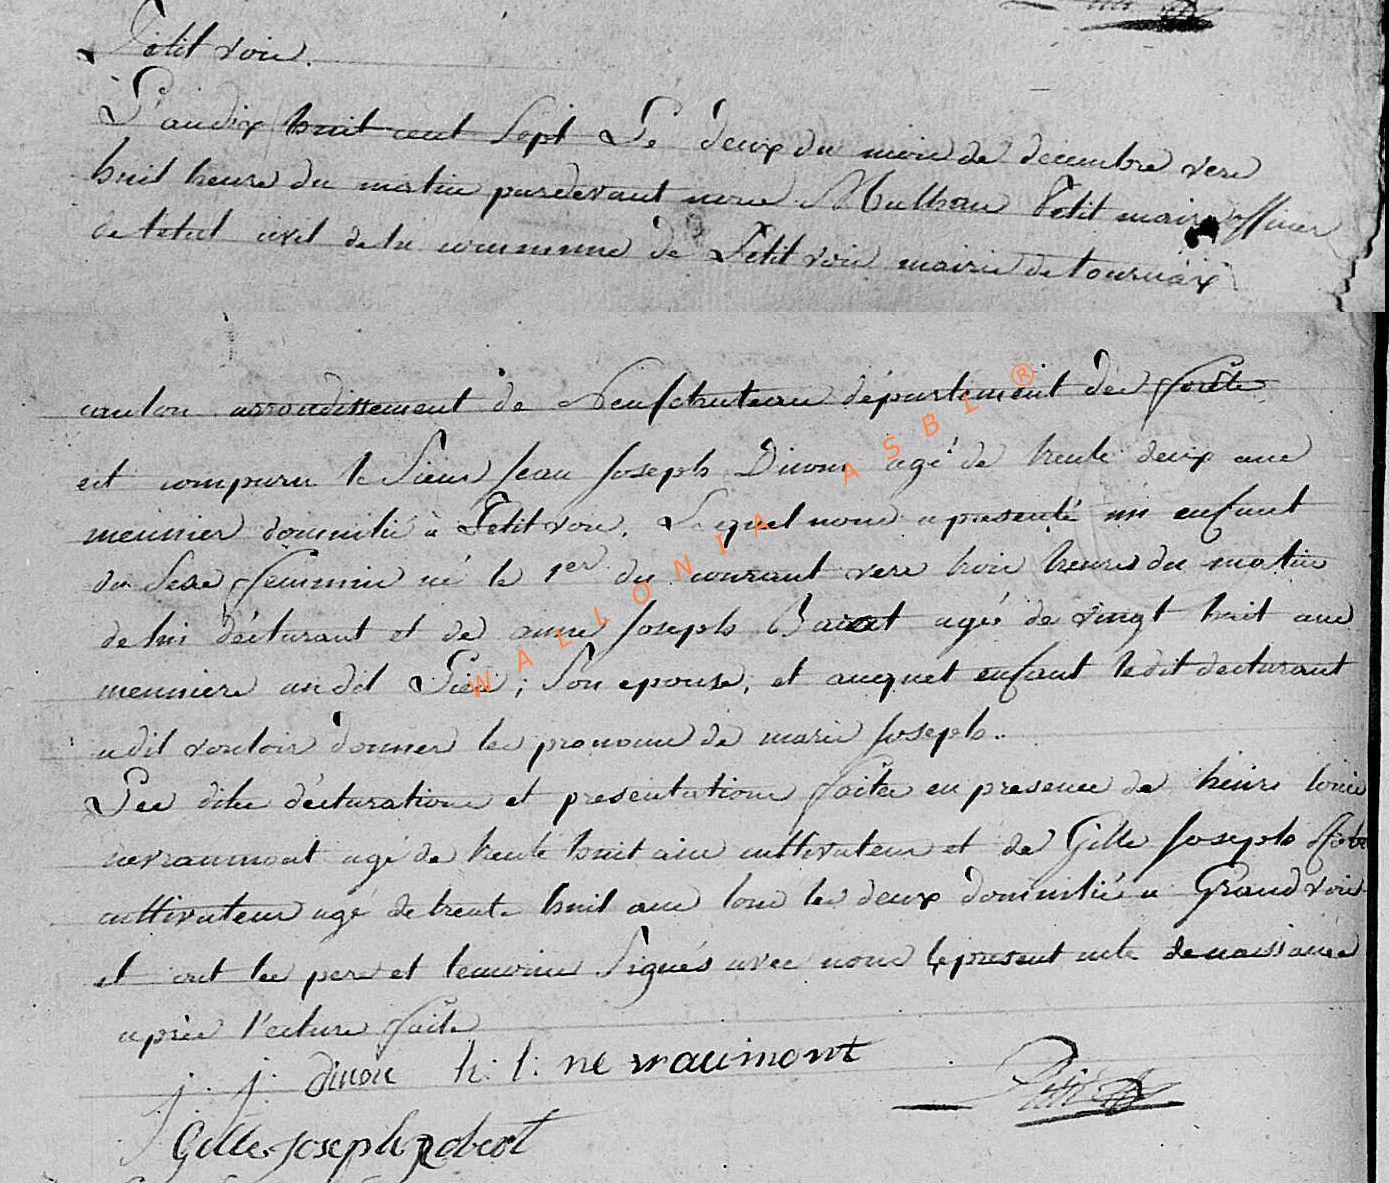 Petit voir.
L'an dix huit cent sept Le deux du mois de decembre vers
huit heure du matin pardevant nous Mathieu Petit maire officier
de letat civil de la commune de Petit voir mairie de tournay
canton arrondissement de Neufchateau département des forêts
est comparu le Sieur Jean Joseph Dion agé de trente deux ans
meunier domicilié à Petit voir. Lequel nous a presenté un enfant
du Sexe femmin né le 1er du courant vers trois heures du matin
de lui déclarant et de anne Joseph agée de vingt huit ans
meuniere au dit Lieu; Son epouse, et auquel enfant ledit declarant
a dit vouloir donner les pronoms de marie Joseph..
Les dites déclarations et presentations faites en presence de henri louis
nevraumont agé de trente huit ans cultivateur et de Gille Joseph
cultivateur agé de trente huit ans tous les deux domicilié a Grand voir
et ont les per et temoins Signés avec nous le present acte de naissance
après l'ecture faite
j. j. dion h. l. nevraumont
Petit
Gille Joseph Robert
WALLONIA ASBL ®